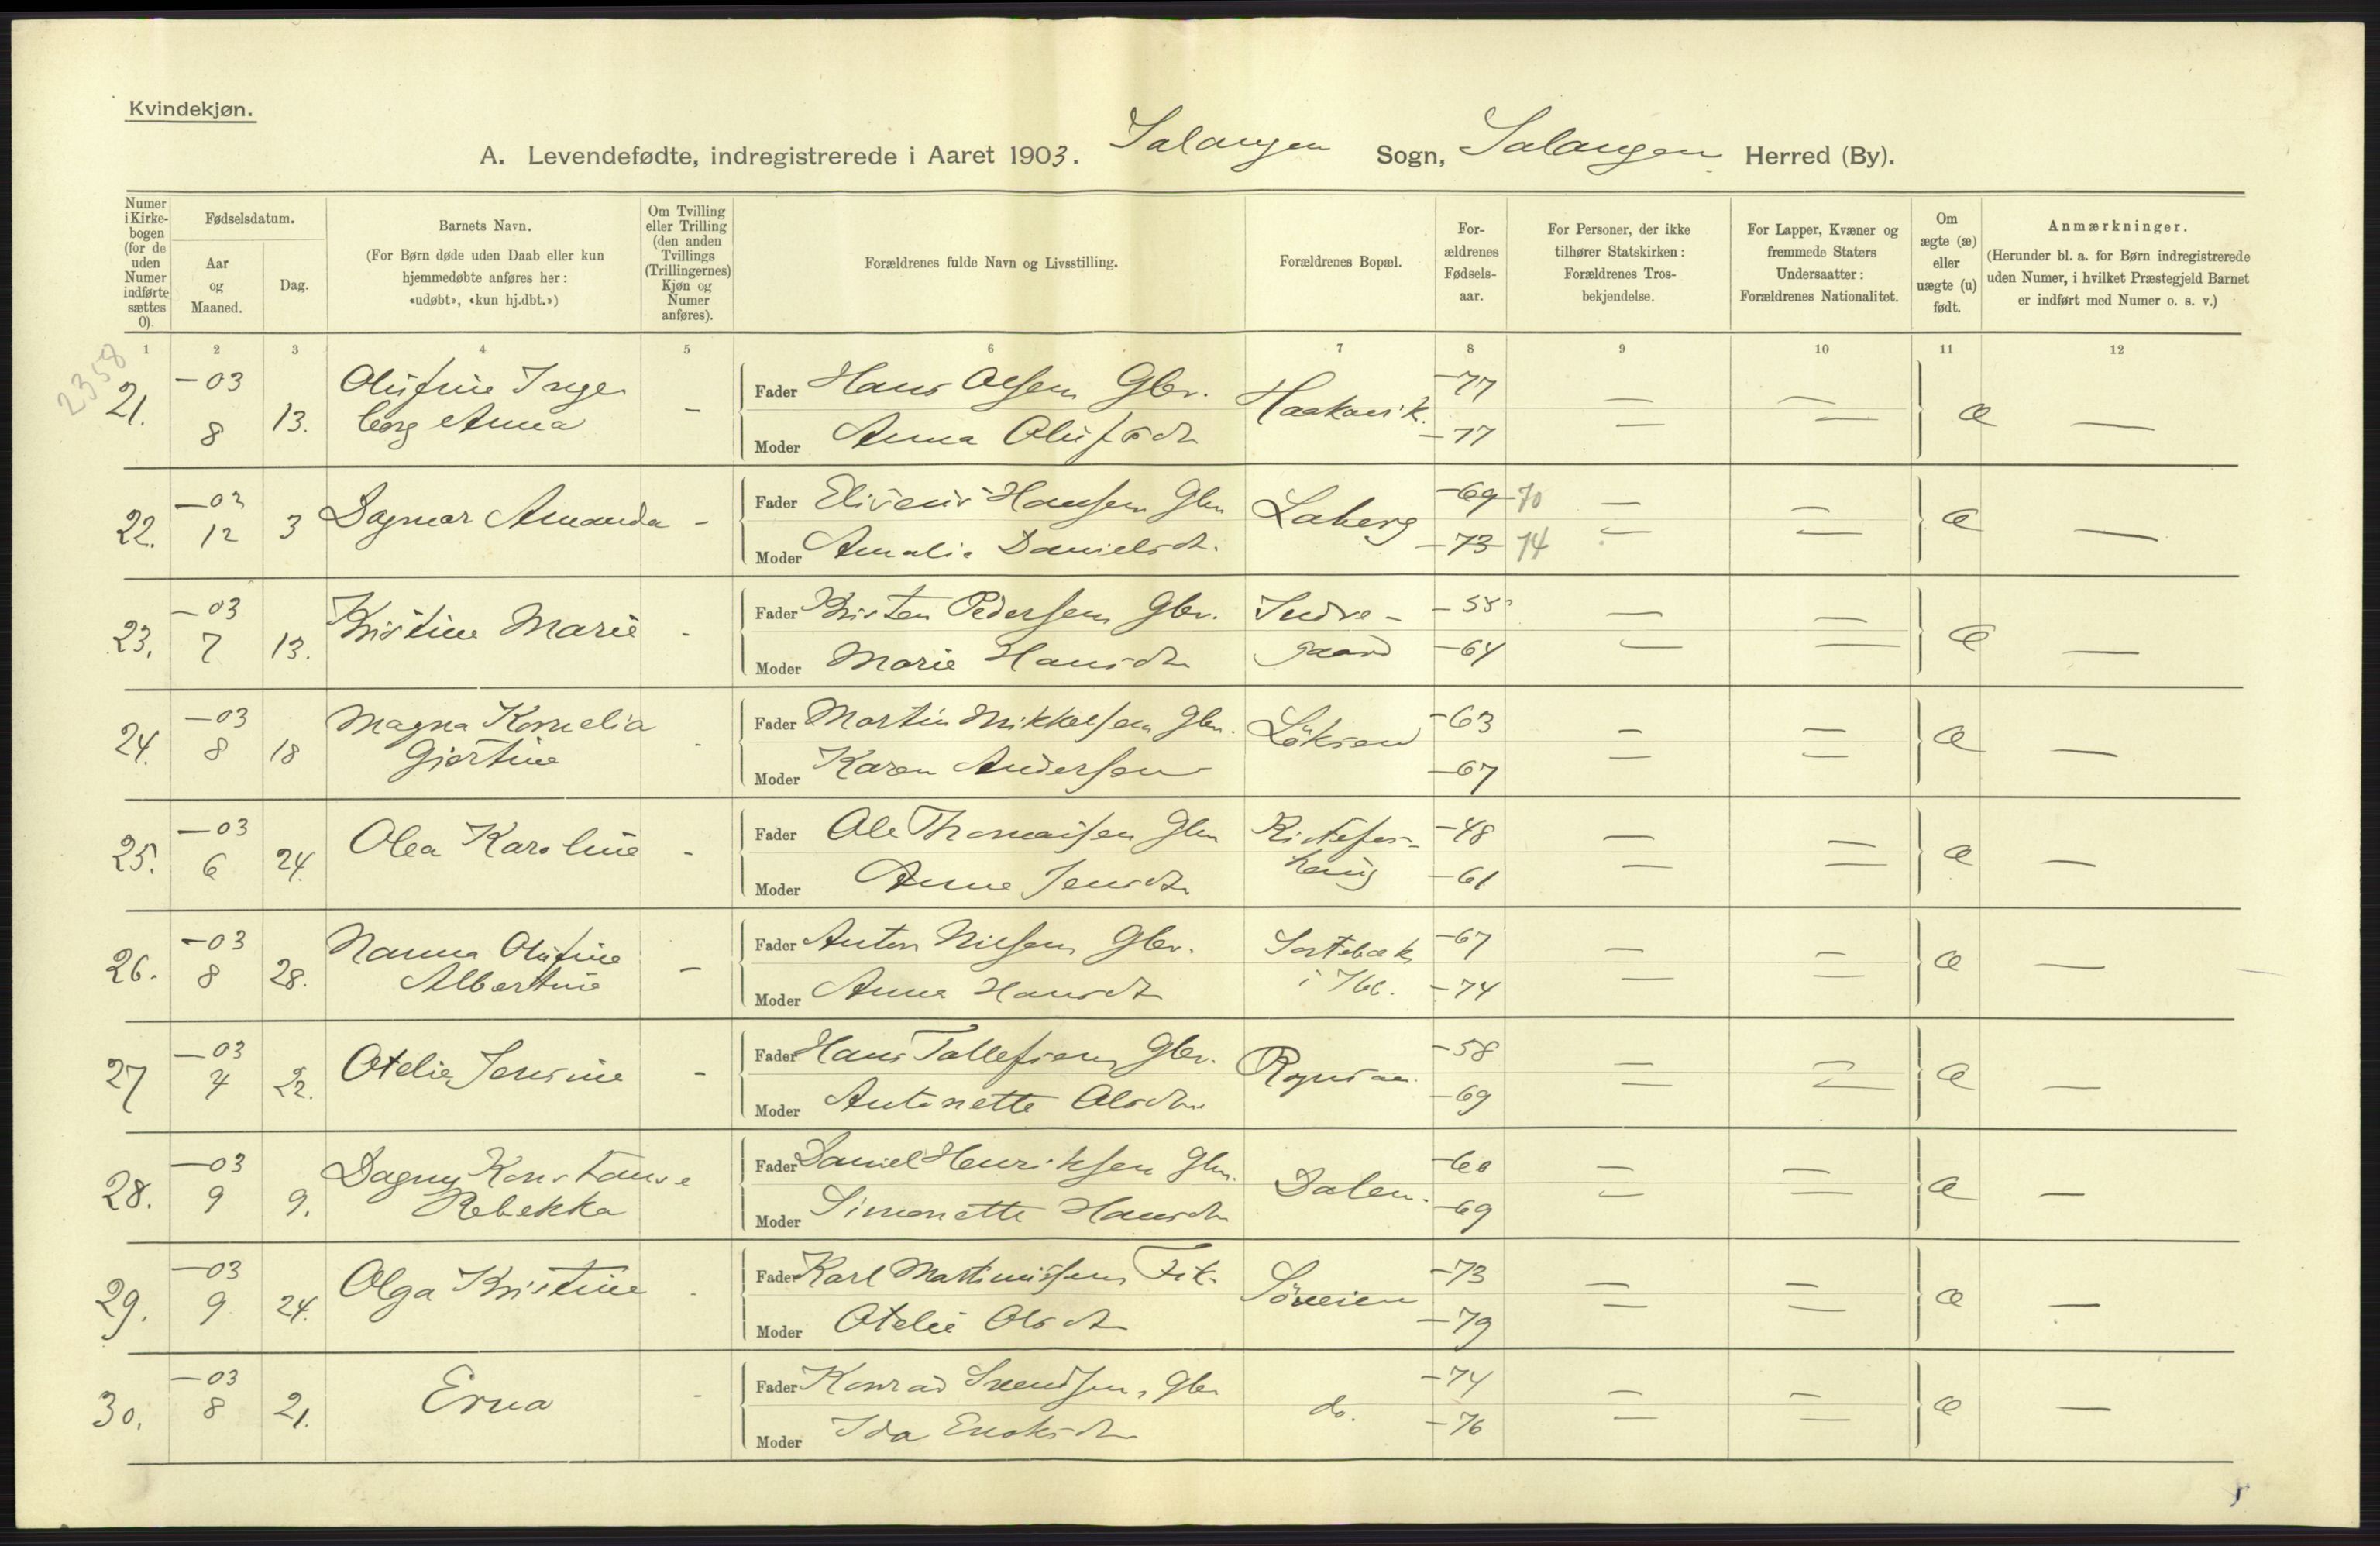 Kvindekjøn.
A. Levendefødte, indregistrerede i Aaret 1903. Salangen Sogn, Salangen Herred (By).
Numer i Kirke-bogen (for de uden Numer indførte sættes 0).
Fødselsdatum.
Aar og Maaned.
Dag.
Barnets Navn.
(For Børn døde uden Daab eller kun
hjemmedøbte anføres her:
«udøbt», «kun hj.dbt.»)
Om Tvilling
eller Trilling
(den anden
Tvillings
(Trillingernes)
Kjøn og
Numer
anføres).
Forældrenes fulde Navn og Livsstilling.
Forældrenes Bopæl.
For-
ældrenes
Fødsels-
aar.
For Personer, der ikke
tilhører Statskirken:
Forældrenes Tros-
bekjendelse.
For Lapper, Kvæner og
fremmede Staters
Undersaatter:
Forældrenes Nationalitet.
Om
ægte (æ)
eller
uægte (u)
født.
Anmærkninger.
(Herunder bl. a. for Børn indregistrerede
uden Numer, i hvilket Præstegjeld Barnet
er indført med Numer o. s. v.)
1 2 3 4 5 6 7 8 9 10 11 12
2358
21. —03 8 13. Olufine Inge
borg Anna -
Fader Hans Olsen Gbr. Haakavik. —77 — — æ —
Moder Anna Olufsdtr —77 — —
22. —03 12 3 Dagmar Amanda -
Fader Eliseus Hansen Gbr Laberg —69 70 — — æ —
Moder Amalie Danielsdtr. —73 74 — —
23. —03 7 13. Kristine Marie -
Fader Kristen Pedersen Gbr. Indre- —55 — — æ —
Moder Marie Hansdtr gaard —64 — —
24. —03 8 18 Magna Kornelia
Gjertine -
Fader Martin Mikkelsen Gbr. —63 — — æ —
Moder Karen Andersen —67 — —
25. —03 6 24. Olea Karoline -
Fader Ole Thomassen Gbr —48 — — æ —
Moder Anne Jensdtr haug —61 — —
26. —03 8 28. Nanna Olufine
Albertine -
Fader Anton Nilsen Gbr. Sortebæk —67 — — æ —
Moder Anna Hansdtr —74 — —
27 —03 4 22. Otelie Jensine -
Fader Hans Tollefsen Gbr. —58 — — æ —
Moder Antonette Olsdtr. —69 — —
28. —03 9 9. Dagny Konstanse
Rebekka
Fader Daniel Henriksen Gbr. Dalen. —60 — — æ —
Moder Simonette Hansdtr —69 — —
29. —03 9 24. Olga Kristine -
Fader Karl Martinussen Fik. Søveien —73 — — æ —
Moder Otelie Olsdtr —79 — —
30. —03 8 21. Erna -
Fader Konrad Svendsen, Gbr do. —74 — — æ —
Moder Ida Enoksdtr —76 — —